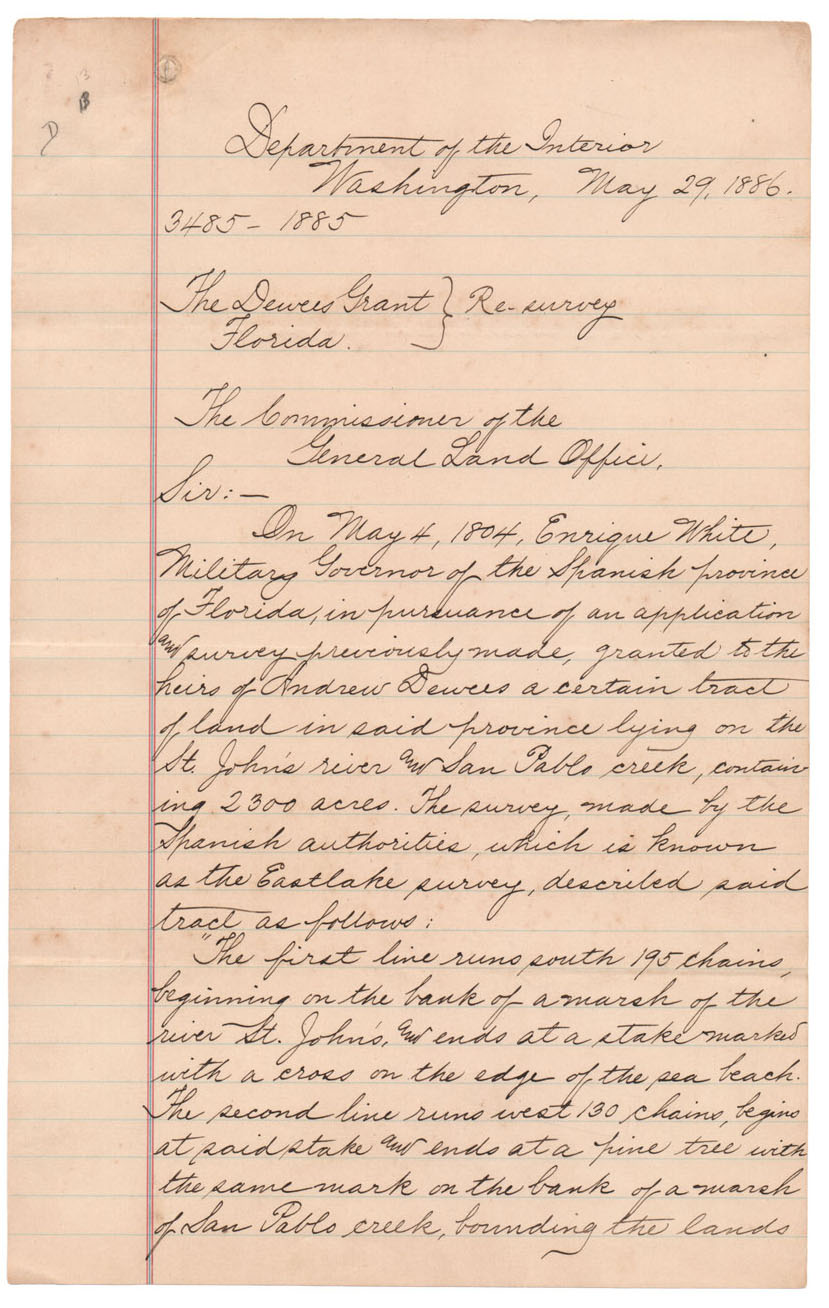 B
B
D
Department of the Interior
Washington, May 29, 1886.
3485 - 1885
The Dewees Grant } Re-survey
Florida.
The Commissioner of the
General Land Office,
Sir:—
On May 4, 1804, Enrique White,
Military Governor of the Spanish province
of Florida, in pursuance of an application
and survey previously made, granted to the
heirs of Andrew Dewees a certain tract
of land in said province lying on the
St. John's river and San Pablo creek, contain-
ing 2300 acres. The survey, made by the
Spanish authorities, which is known
as the Eastlake survey, described said
tract as follows:
"The first line runs south 195 chains,
beginning on the bank of a marsh of the
river St. John's, and ends at a stake marked
with a cross on the edge of the sea beach.
The second line runs west 130 chains, begins
at said stake and ends at a pine tree with
the same mark on the bank of a marsh
of San Pablo creek, bounding the lands